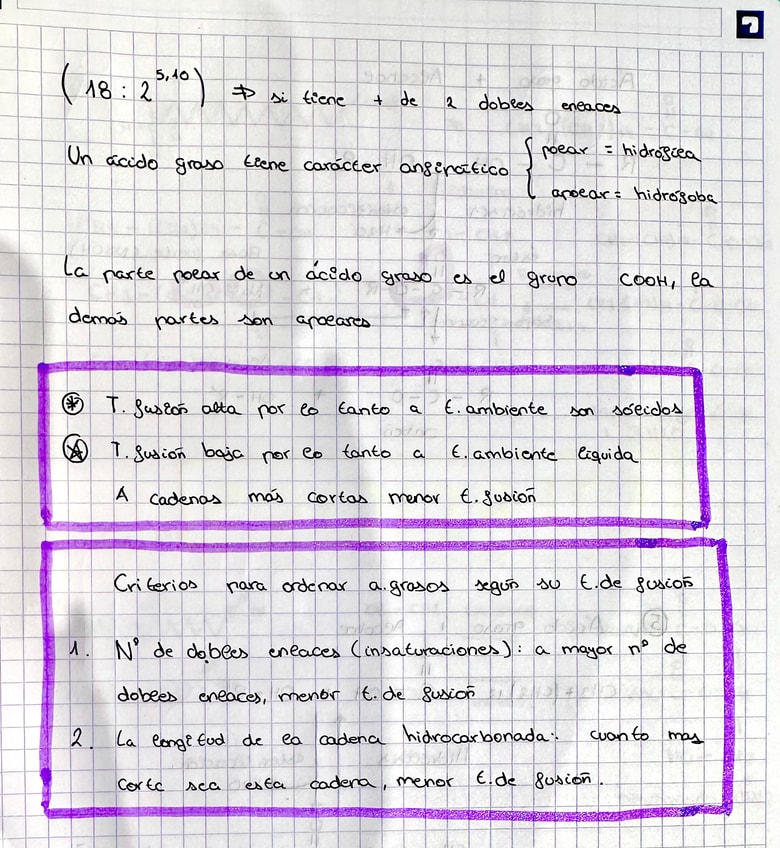 (18 : 2^5,10) ⇒ si tiene + de 2 dobles enlaces
Un ácido graso tiene carácter anfipático { polar = hidrofílica
apolar = hidrófoba
La parte polar de un ácido graso es el grupo COOH, la
demás partes son apolares
⊛ T. fusión alta por lo tanto a t. ambiente son sólidos
⍟ T. fusión baja por lo tanto a t. ambiente líquida
A cadenas más cortas menor t. fusión
Criterios para ordenar a. grasos según su t. de fusión
1. Nº de dobles enlaces (insaturaciones): a mayor nº de
dobles enlaces, menor t. de fusión
2. La longitud de la cadena hidrocarbonada: cuanto mas
corta sea esta cadena, menor t. de fusión.